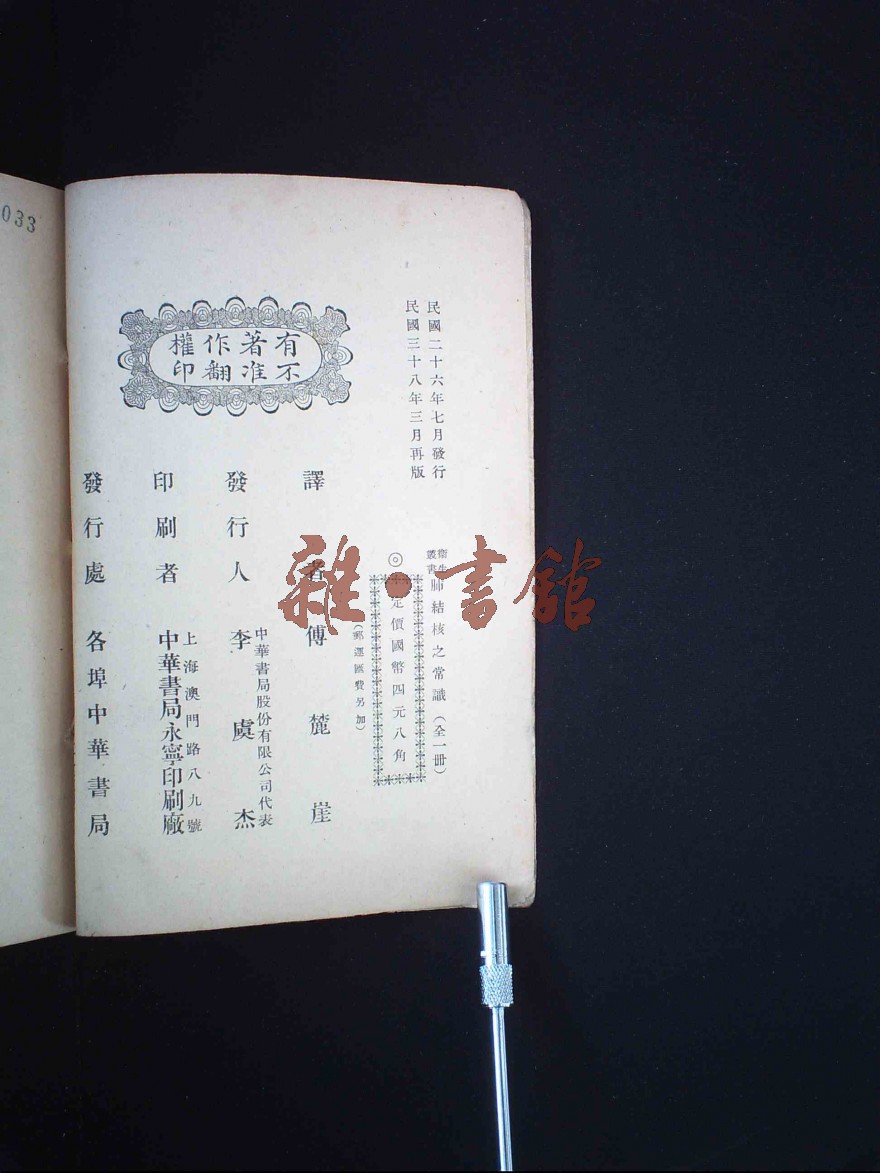 民國二十六年七月發行
民國三十八年三月再版
衛生叢書 肺結核之常識（全一冊）
◎定價國幣四元八角
（郵運匯費另加）
有著作權
不准翻印
譯者 傅麓崖
發行人 李虞杰
中華書局股份有限公司代表
印刷者 中華書局永寧印刷廠
上海澳門路八九號
發行處 各埠中華書局
033
雜·書館